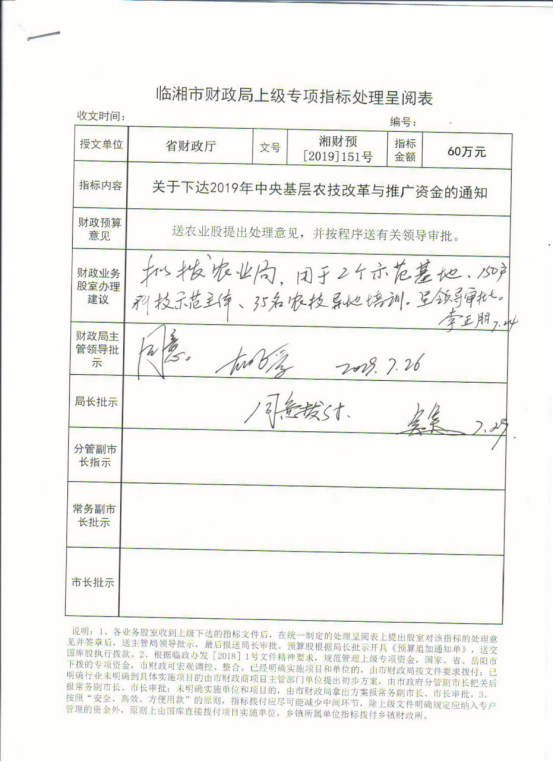 临湘市财政局上级专项指标处理呈阅表
收文时间: 编号:
授文单位 省财政厅 文号 湘财预[2019]151号 指标金额 60万元
指标内容 关于下达2019年中央基层农技改革与推广资金的通知
财政预算意见 送农业股提出处理意见,并按程序送有关领导审批。
财政业务股室办理建议 拟拨农业局,用于2个示范基地、150户
科技示范主体、35名农技异地培训。呈领导审批。
李正朋 7.24
财政局主管领导批示 同意。 7.26
局长批示 同意拨付。 7.29
分管副市长指示
常务副市长批示
市长批示
说明:1、各业务股室收到上级下达的指标文件后,在统一制定的处理呈阅表上提出股室对该指标的处理意
见并签章后,送主管局领导批示,最后报送局长审批。预算股根据局长批示开具《预算追加通知单》,送交
国库股执行拨款。2、根据临政办发[2018]1号文件精神要求,规范管理上级专项资金,国家、省、岳阳市
下拨的专项资金,市财政可宏观调控、整合。已经明确实施项目和单位的,由市财政局按文件要求拨付;已
明确行业未明确到具体实施项目的由市财政商项目主管部门单位提出初步方案,由市政府分管副市长把关后
报常务副市长、市长审批;未明确实施单位和项目的,由市财政局拿出方案报常务副市长、市长审批。3、
按照“安全、高效、方便用款”的原则,指标拨付应尽可能减少中间环节,除上级文件明确规定应纳入专户
管理的资金外,原则上由国库直接拨付项目实施单位,乡镇所属单位指标拨付乡镇财政所。